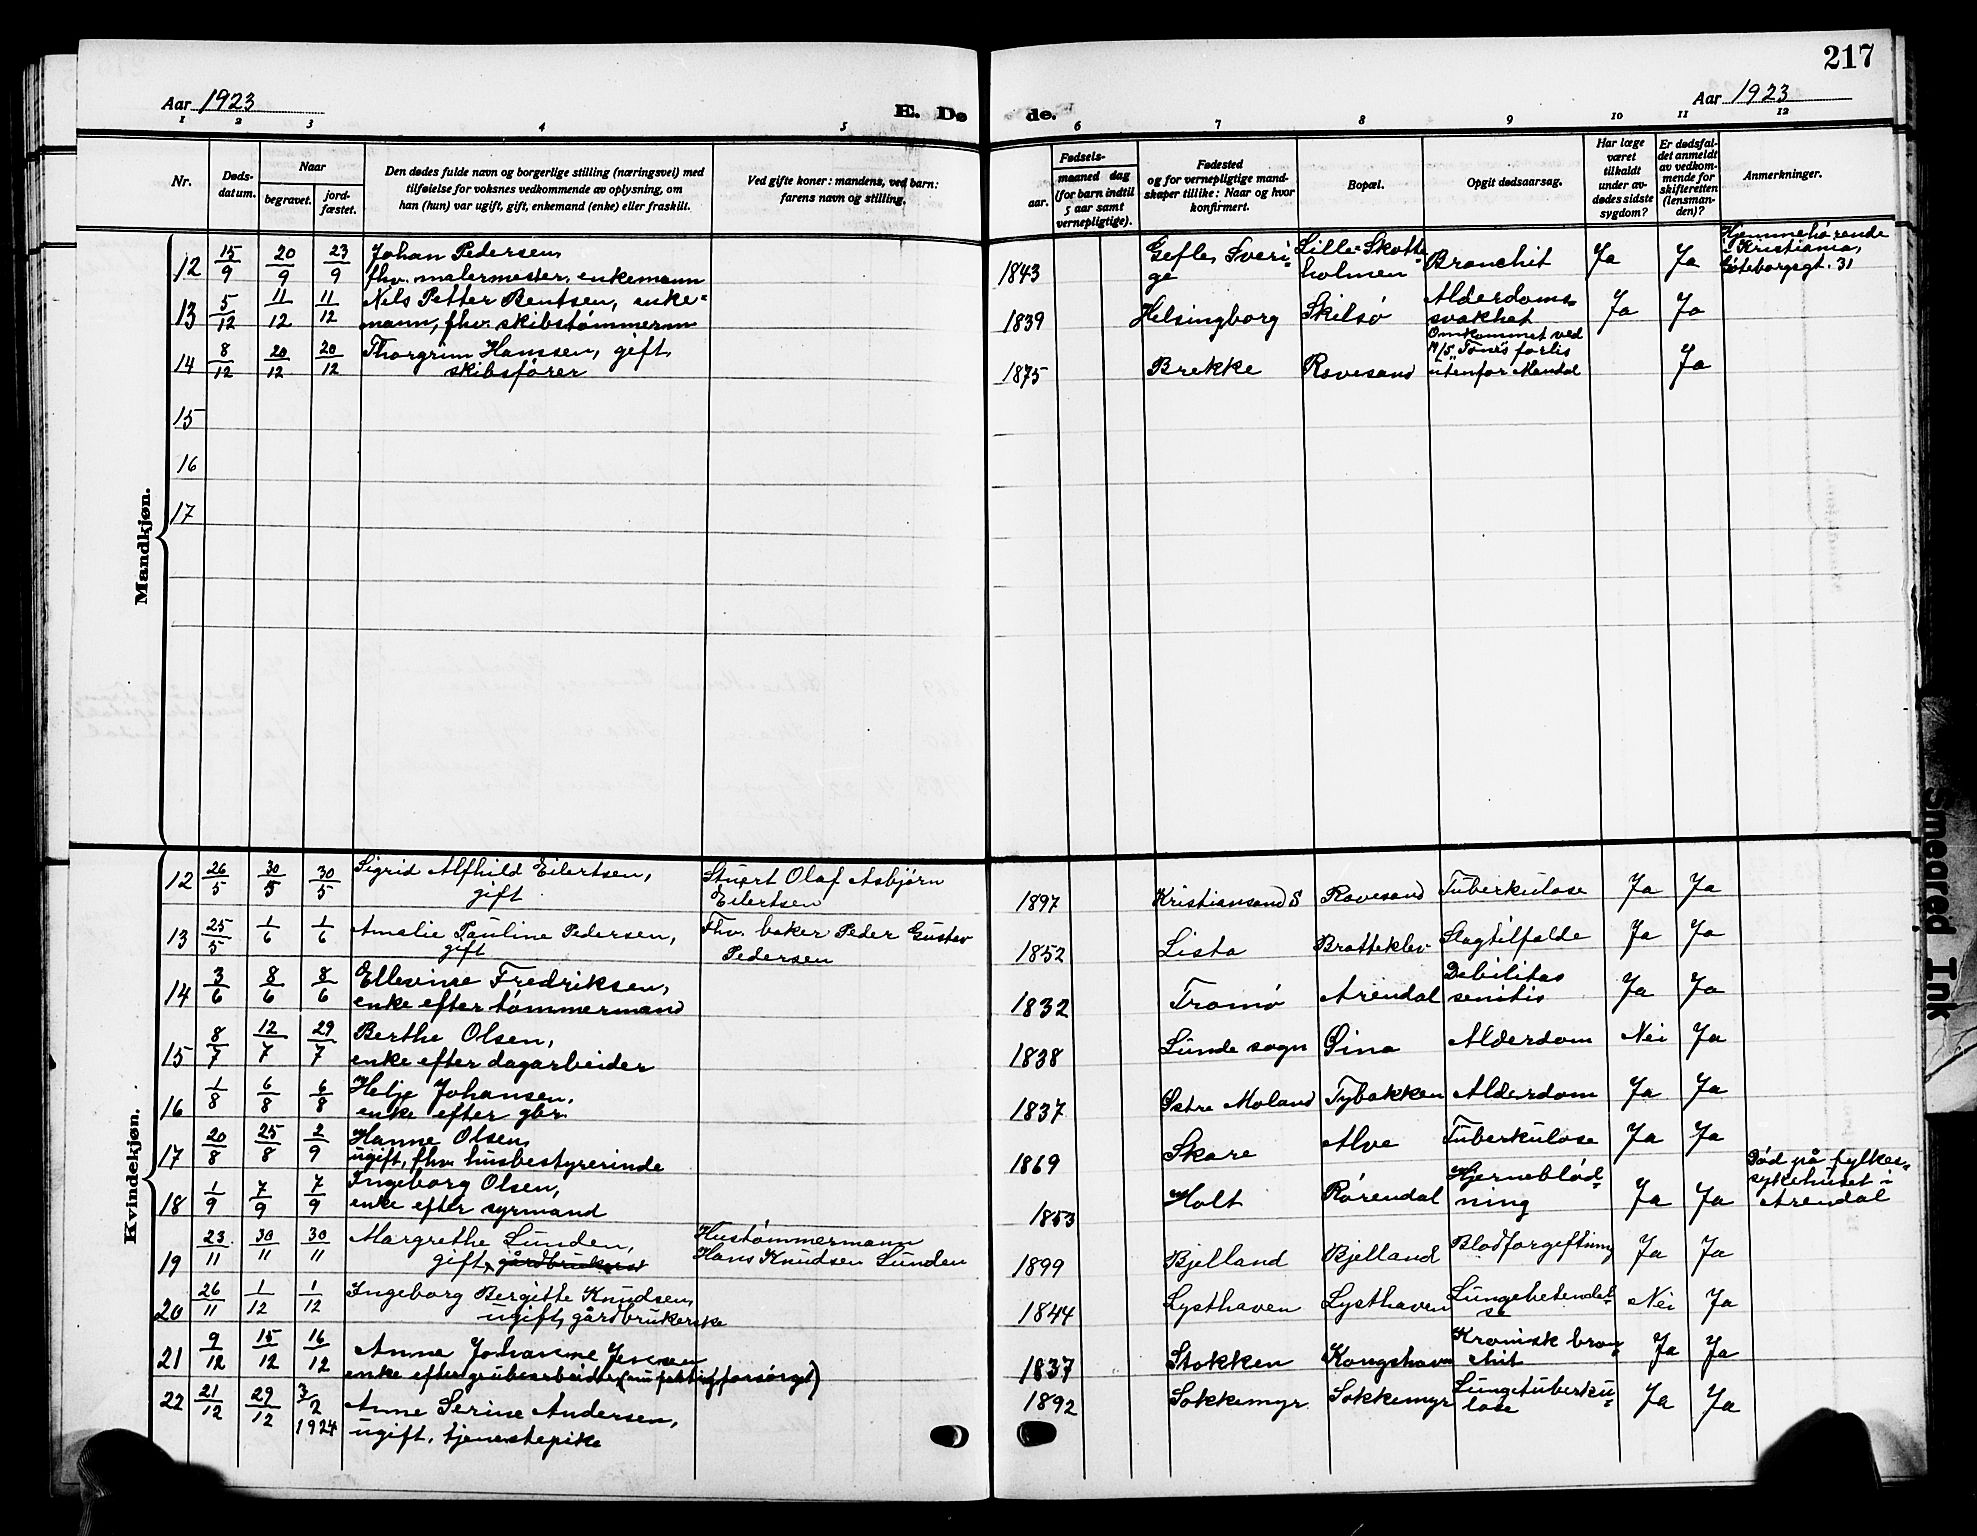 217
Aar 1923
E. Dø
de.
Aar 1923
1 2 3 4 5 6 7 8 9 10 11 12
Nr.
Døds-
datum.
Naar
begravet.
jord-
fæstet.
Den dødes fulde navn og borgerlige stilling (næringsvei) med
tilføielse for voksnes vedkommende av oplysning, om
han (hun) var ugift, gift, enkemand (enke) eller fraskilt.
Ved gifte koner: mandens, ved barn:
farens navn og stilling.
Fødsels-
aar.
maaned dag
(for barn indtil
5 aar samt
vernepligtige).
Fødested
og for vernepligtige mand-
skaper tillike: Naar og hvor
konfirmert.
Bopæl.
Opgit dødsaarsag.
Har læge
været
tilkaldt
under av-
dødes sidste
sygdom?
Er dødsfal-
det anmeldt
av vedkom-
mende for
skifteretten
(lensman-
den)?
Anmerkninger.
Mandkjøn.
12 15/9 20/9 23/9 Johan Pedersen,
fhv. malermester, enkemann
1843 Gefle, Sveri-
ge
Lille-Skotte-
holmen
Bronchit Ja Ja
Hjemmehørende
i Kristiania,
Gøteborggt. 31
13 5/12 11/12 11/12 Nils Petter Bentsen, enke-
mann, fhv. skibstømmerm
1839 Helsingborg Skilsø
Alderdoms-
svakhet
Ja Ja
14 8/12 20/12 20/12 Thorgrim Hanssen, gift,
skibsfører
1875 Brekke Revesand
Omkommet ved
forlis
utenfor Mandal
Ja
15
16
17
Kvindekjøn.
12 26/5 30/5 30/5 Sigrid Alfhild Eilertsen,
gift
Stuert Olaf Asbjørn
Eilertsen
1897 Kristiansand S Revesand Tuberkulose Ja Ja
13 25/5 1/6 1/6 Amalie Pauline Pedersen,
gift
Fhv. baker Peder Gustav
Pedersen
1852 Lista Bratteklev Slagtilfælde Ja Ja
14 3/6 8/6 8/6 Ellevine Fredriksen,
enke efter tømmermand
1832 Tromø Arendal
Debilitas
senilis
Ja Ja
15 8/7 12/7 29/7 Berthe Olsen,
enke efter dagarbeider
1838 Lunde sogn Gina Alderdom Nei Ja
16 1/8 6/8 6/8 Helje Johansen,
enke efter gbr.
1837 Østre Moland Tybakken Alderdom Ja Ja
17 20/8 25/8 2/9 Hanne Olsen,
ugift, fhv. husbestyrerinde
1869 Skare Alve Tuberkulose Ja Ja
18 1/9 7/9 7/9 Ingeborg Olsen,
enke efter styrmand
1853 Holt Rørendal
Hjerneblød-
ning
Ja Ja
Død på fylkes-
sykehuset i
Arendal
19 23/11 30/11 30/11 Margrethe Lunden,
gift, gårdbrukerske
Hustømmermann
Hans Knudsen Lunden
1899 Bjelland Bjelland Blodforgiftning Ja Ja
20 26/11 1/12 1/12 Ingeborg Bergitte Knudsen,
ugift, gårdbrukerske
1844 Lysthaven Lysthaven
Lungebetendel-
se
Nei Ja
21 9/12 15/12 16/12 Anne Johanne Jensen
enke efter grubearbeider (nu fattigforsørget)
1837 Stokken Kongshavn
Kronisk bron-
chit
Ja Ja
22 21/12 29/12 3/2 1924 Anne Serine Andersen,
ugift, tjenestepike
1892 Sokkemyr Sokkemyr
Lungetuberku-
lose
Ja Ja
Smeared Ink